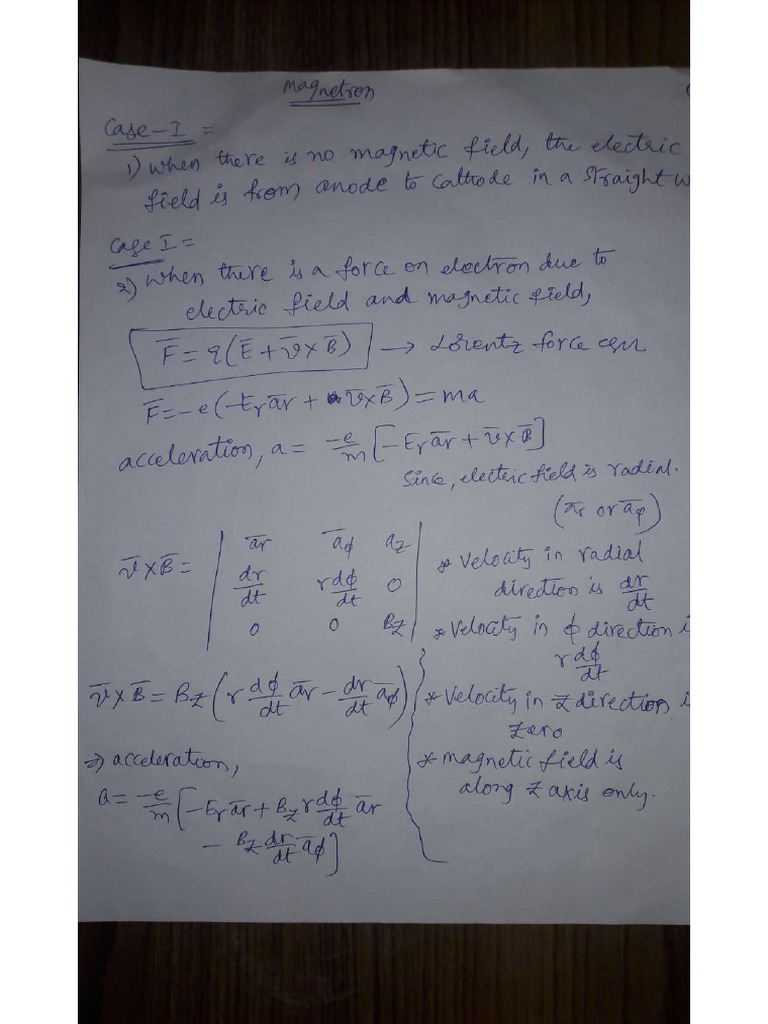 Magnetron
Case-I =
1) When there is no magnetic field, the electric
field is from anode to cathode in a straight
Case I =
2) When there is a force on electron due to
electric field and magnetic field,
F̅ = q(E̅ + v̅ × B̅) → Lorentz force eqn
F̅ = -e(-Er a̅r + v̅ × B̅) = ma
acceleration, a = -e/m [-Er a̅r + v̅ × B̅]
Since, electric field is radial.
(a̅r or a̅φ)
v̅ × B̅ = | a̅r a̅φ az |
| dr/dt r dφ/dt 0 |
| 0 0 Bz |
* Velocity in radial
direction is dr/dt
* Velocity in φ direction
r dφ/dt
* Velocity in z direction
zero
* magnetic field is
along z axis only.
v̅ × B̅ = Bz (r dφ/dt a̅r - dr/dt a̅φ)
⇒ acceleration,
a = -e/m [-Er a̅r + Bz r dφ/dt a̅r
- Bz dr/dt a̅φ]